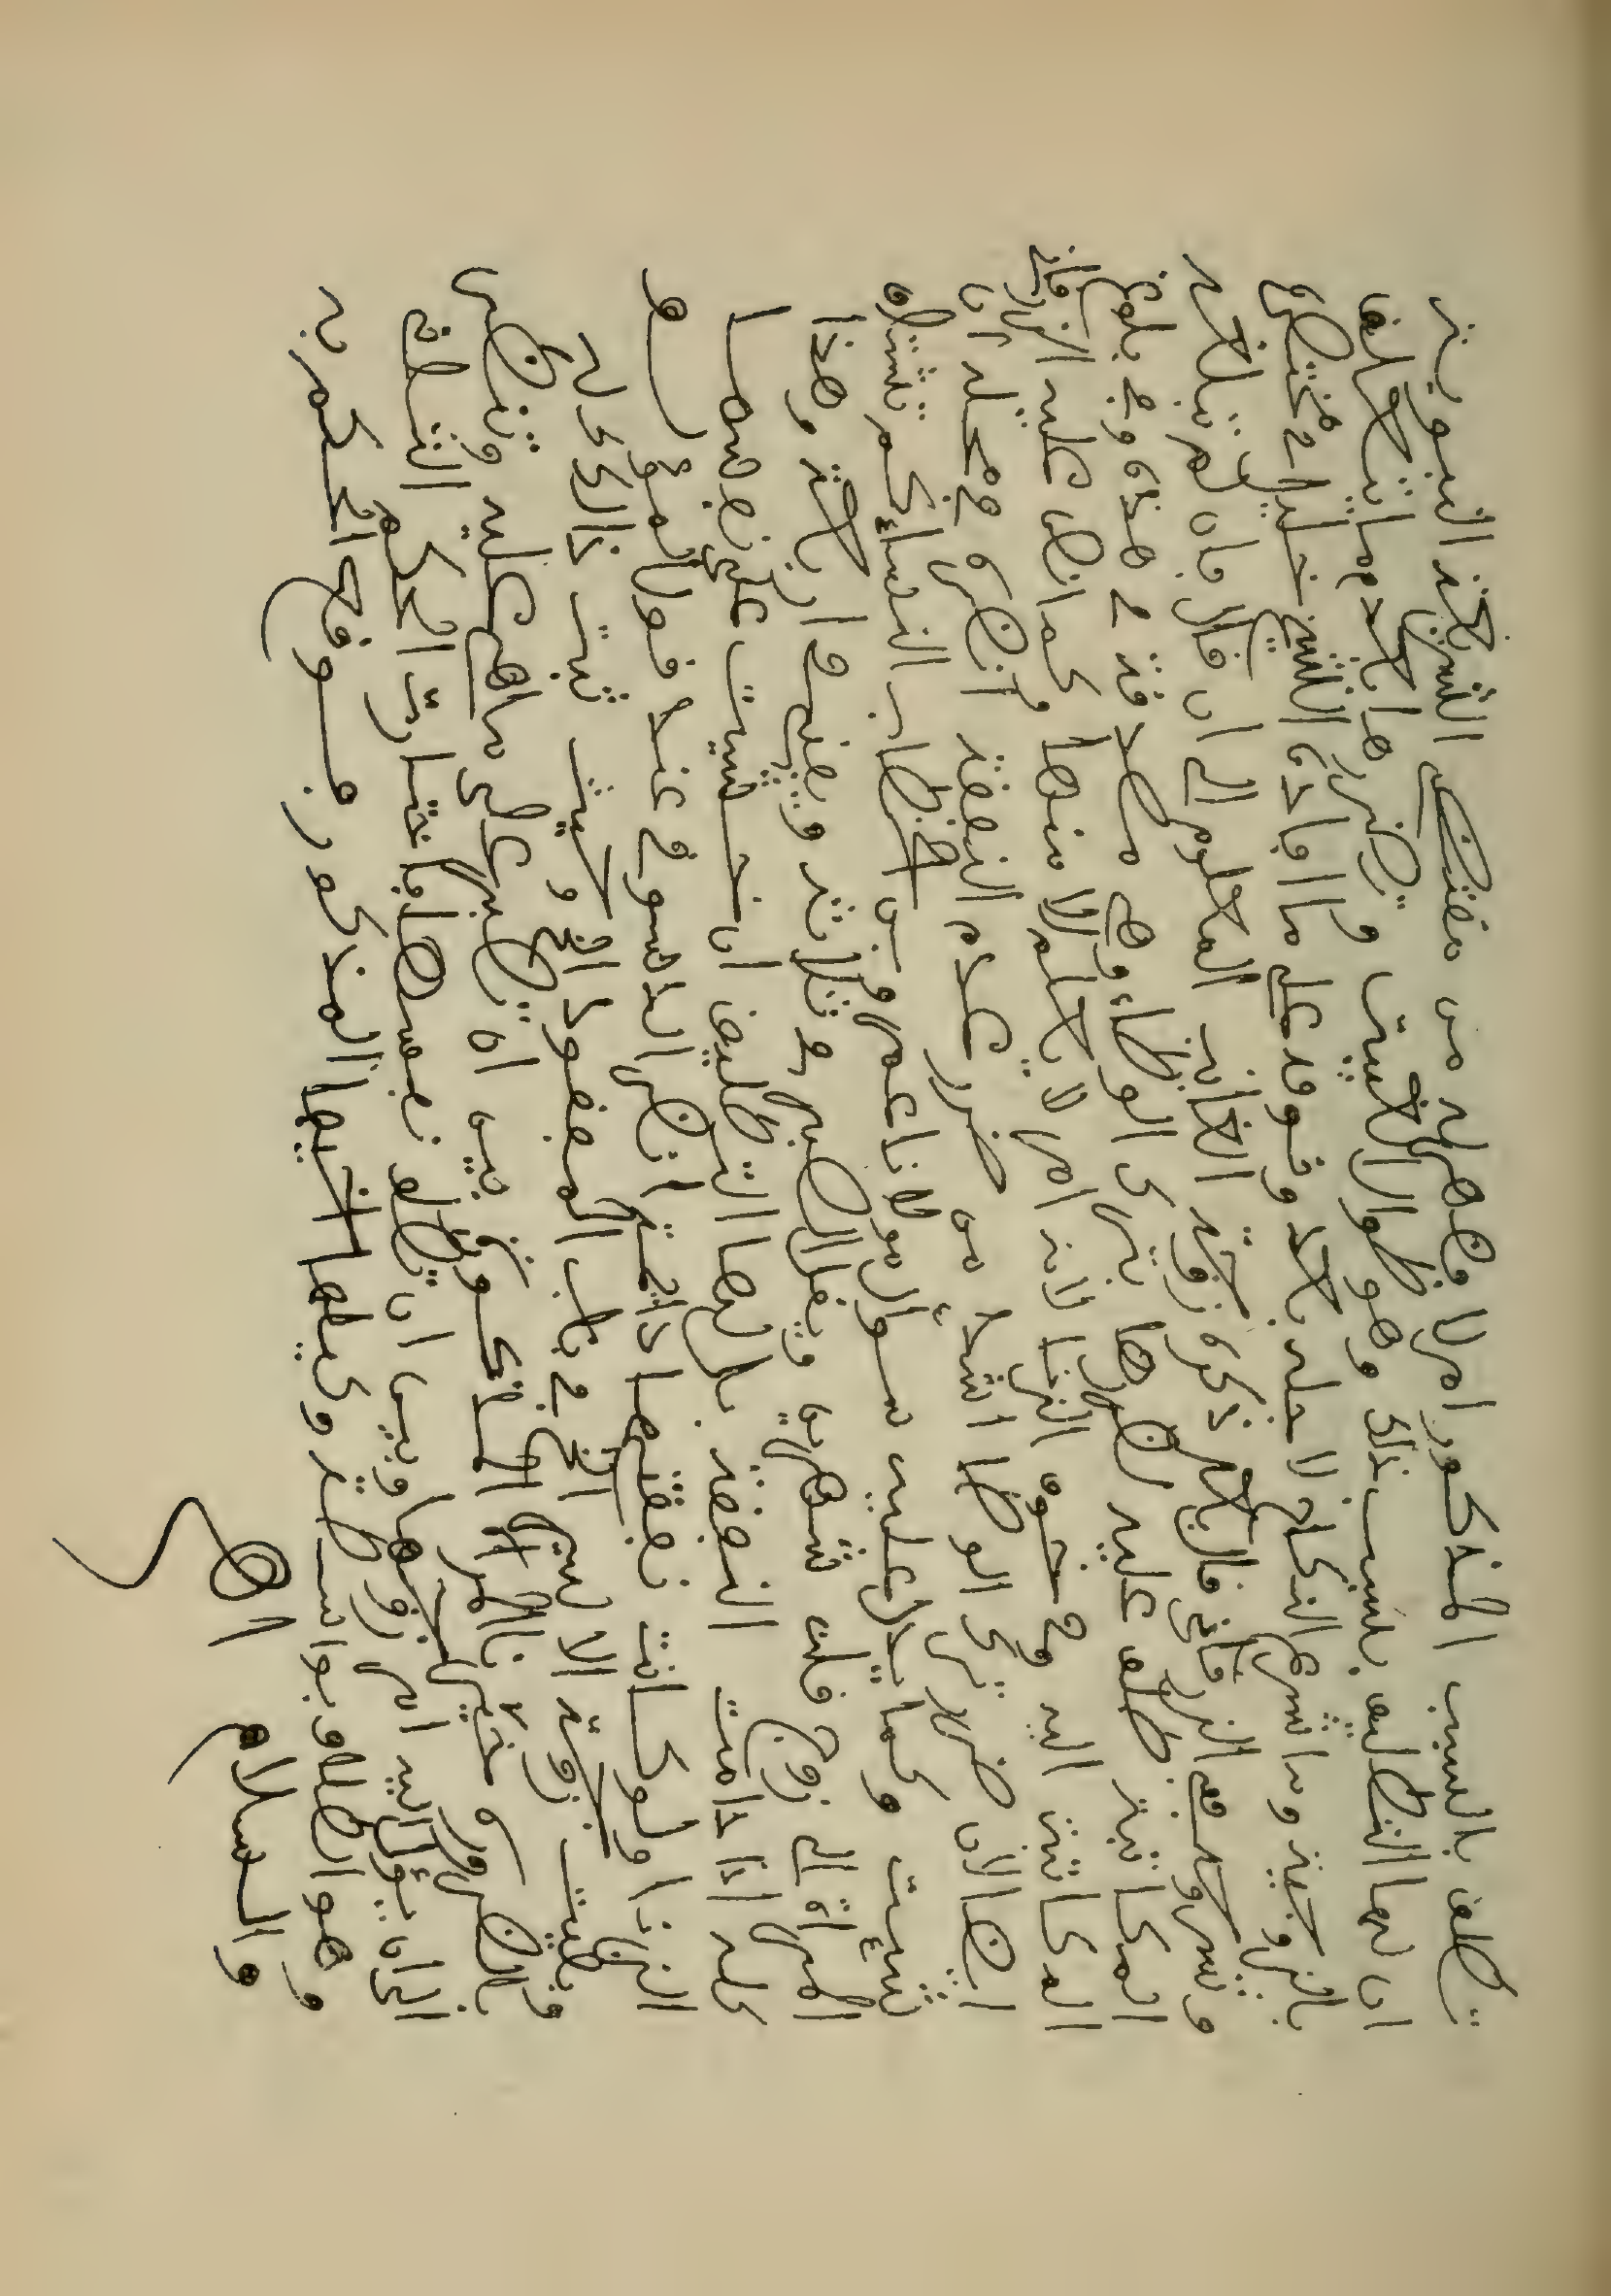 تطلق بالسبب المذكور ام لا فظهر له من مقتضى الشريعة النبوية
ان لها التطليق بسبب ذلك وهو طول الغيبة و تضررها بعدم ما يتعلق
بالزوجية وما شرع النكاح لاجله بعد وقوفه على ما افاده الشيخ خليل في مختصره
وشروحه مع الزرقاني قال بعد ذكره زوجة الغائب المعلوم الى ان قال فان لم تبلغه
المكاتبة طلق عليه لضررها بترك الوطاء وهي مصدقة في هذه وفي بلوغ
المكاتبة اليه وفي خوف الزنا لانه امر لا يعلم الا منها كما نص عليه الزرقاني
ايضا لان ضرر ترك الوطا اشد من ضرر عدم النفقة انظره في محله ان
شئت وكما يدل عليه سؤال مولانا عمر بن الخطاب النساء كم تشتاق
المراة الى زوج قلن شهرين و يقل الصبر في ثلاثة ويفنى في اربعة وهذا
كله اذا دامت النفقة بل لها التطليق ان خشيت على نفسها
الزنا ولو كانت نفقتها دائمة انظر الدسوقي عند قول المؤلف
وبقيت زوجة الاسير الخ في باب المفقود الخ وحيث ثبت ذلك كله
بالضرورة خير لها الامر اما السكون فيه ان تصبر على ما هي عليه وتنتظر
الى ان يؤل اليه امر زوجها وبين ان تطلق نفسها فاختارت الحكم الثاني
وهو الطلاق بواسطة وكيلها اخيها المذكور فوقع الحكم به
والسلام اهـ